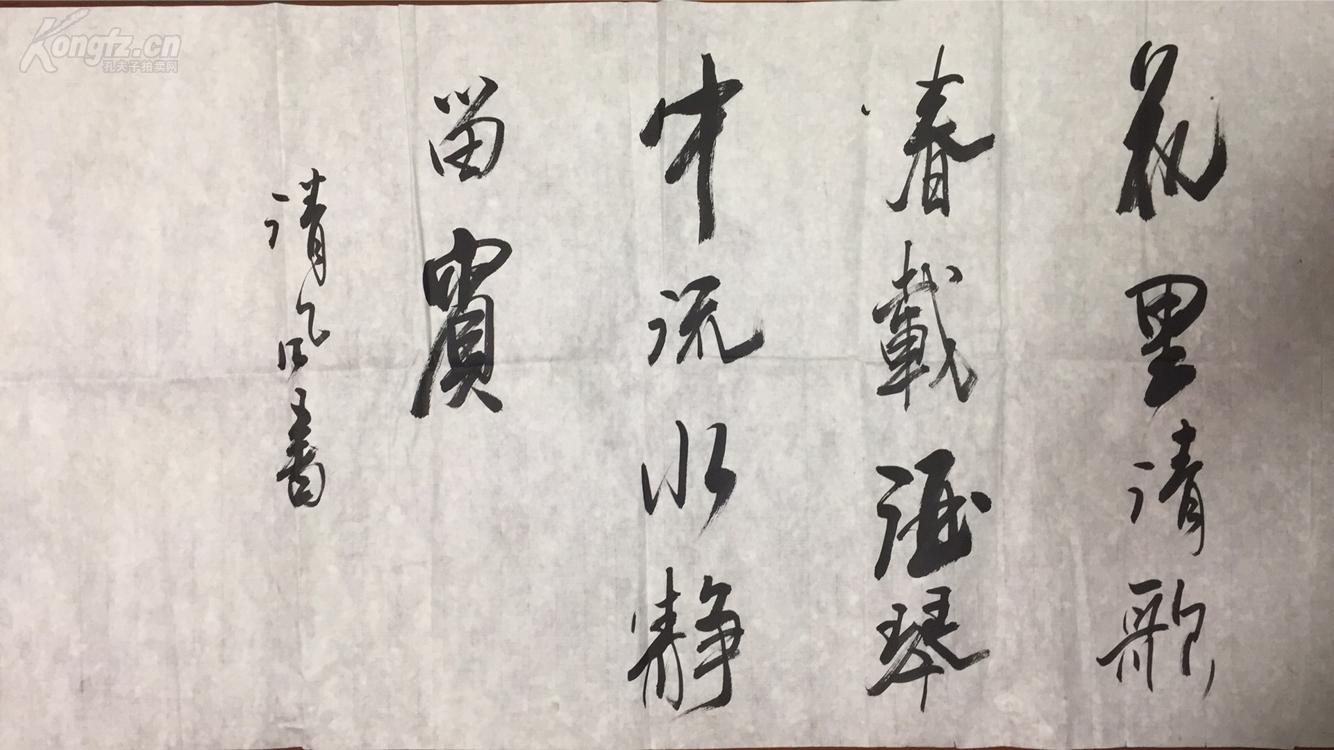 Kongfz.cn
孔夫子拍卖网
花里清歌
春載酒琴
中流水静
留賓
清風書